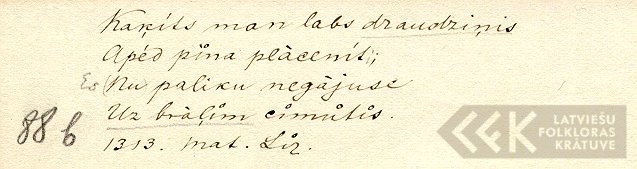 Kaķits man labs draudziņis
Apéd pîna plàcenit;
Es (Nu paliku negájuse
Uz bràļîm cîmûtîs.
88 b
1313. Mat. Liz.
LATVIEŠU
FOLKLORAS
KRĀTUVE